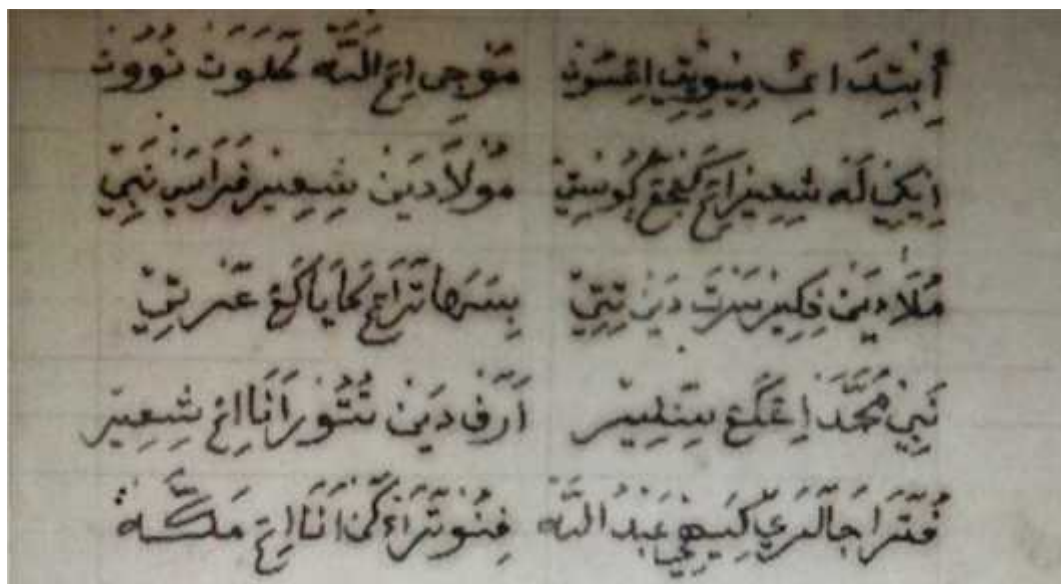 أِبْتِدَائِ مِيْوِيْتِ اِغْسُوْن مُوْجِى اِغ اَللّٰه كَلَوَن نُوْوُن
اِيْكِيْ لَه شِعِيْر اِغ كَنْجَغ كُوْسْتِيْ مَوْلَادَيْن شِعِيْر فَرَاسَن نَبِيْ
مُلَادَيْن فِكِيْر سَرْتَ دَيْن تِيْتِيْ بِسَهَا تَرَاغ كَايَا كَغ عَرْتِيْ
نَبِيْ مُحَمَّدْ اِغكَغ سِيْنِلِيْر اَرَف دَيْن تُتُوْر اَنَا اِغ شِعِيْر
فُتْرَا جَالَرَيْ كِيَهِيْ عَبْدُ اللّٰه فِنُوْتْرَاءَكَن اَنَا اِغ مَكَّة